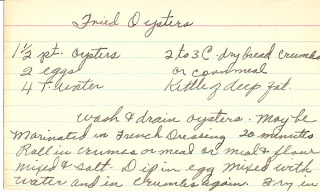 Fried Oysters
1 1/2 pt. oysters
2 eggs
4 T. water
2 to 3 C. dry bread crumbs
or cornmeal
Kettle of deep fat.
Wash & drain oysters. May be
Marinated in French Dressing 20 minutes
Roll in crumbs or meal or meal & flour
mixed & salt. Dip in egg mixed with
water and in crumbs again. Fry in